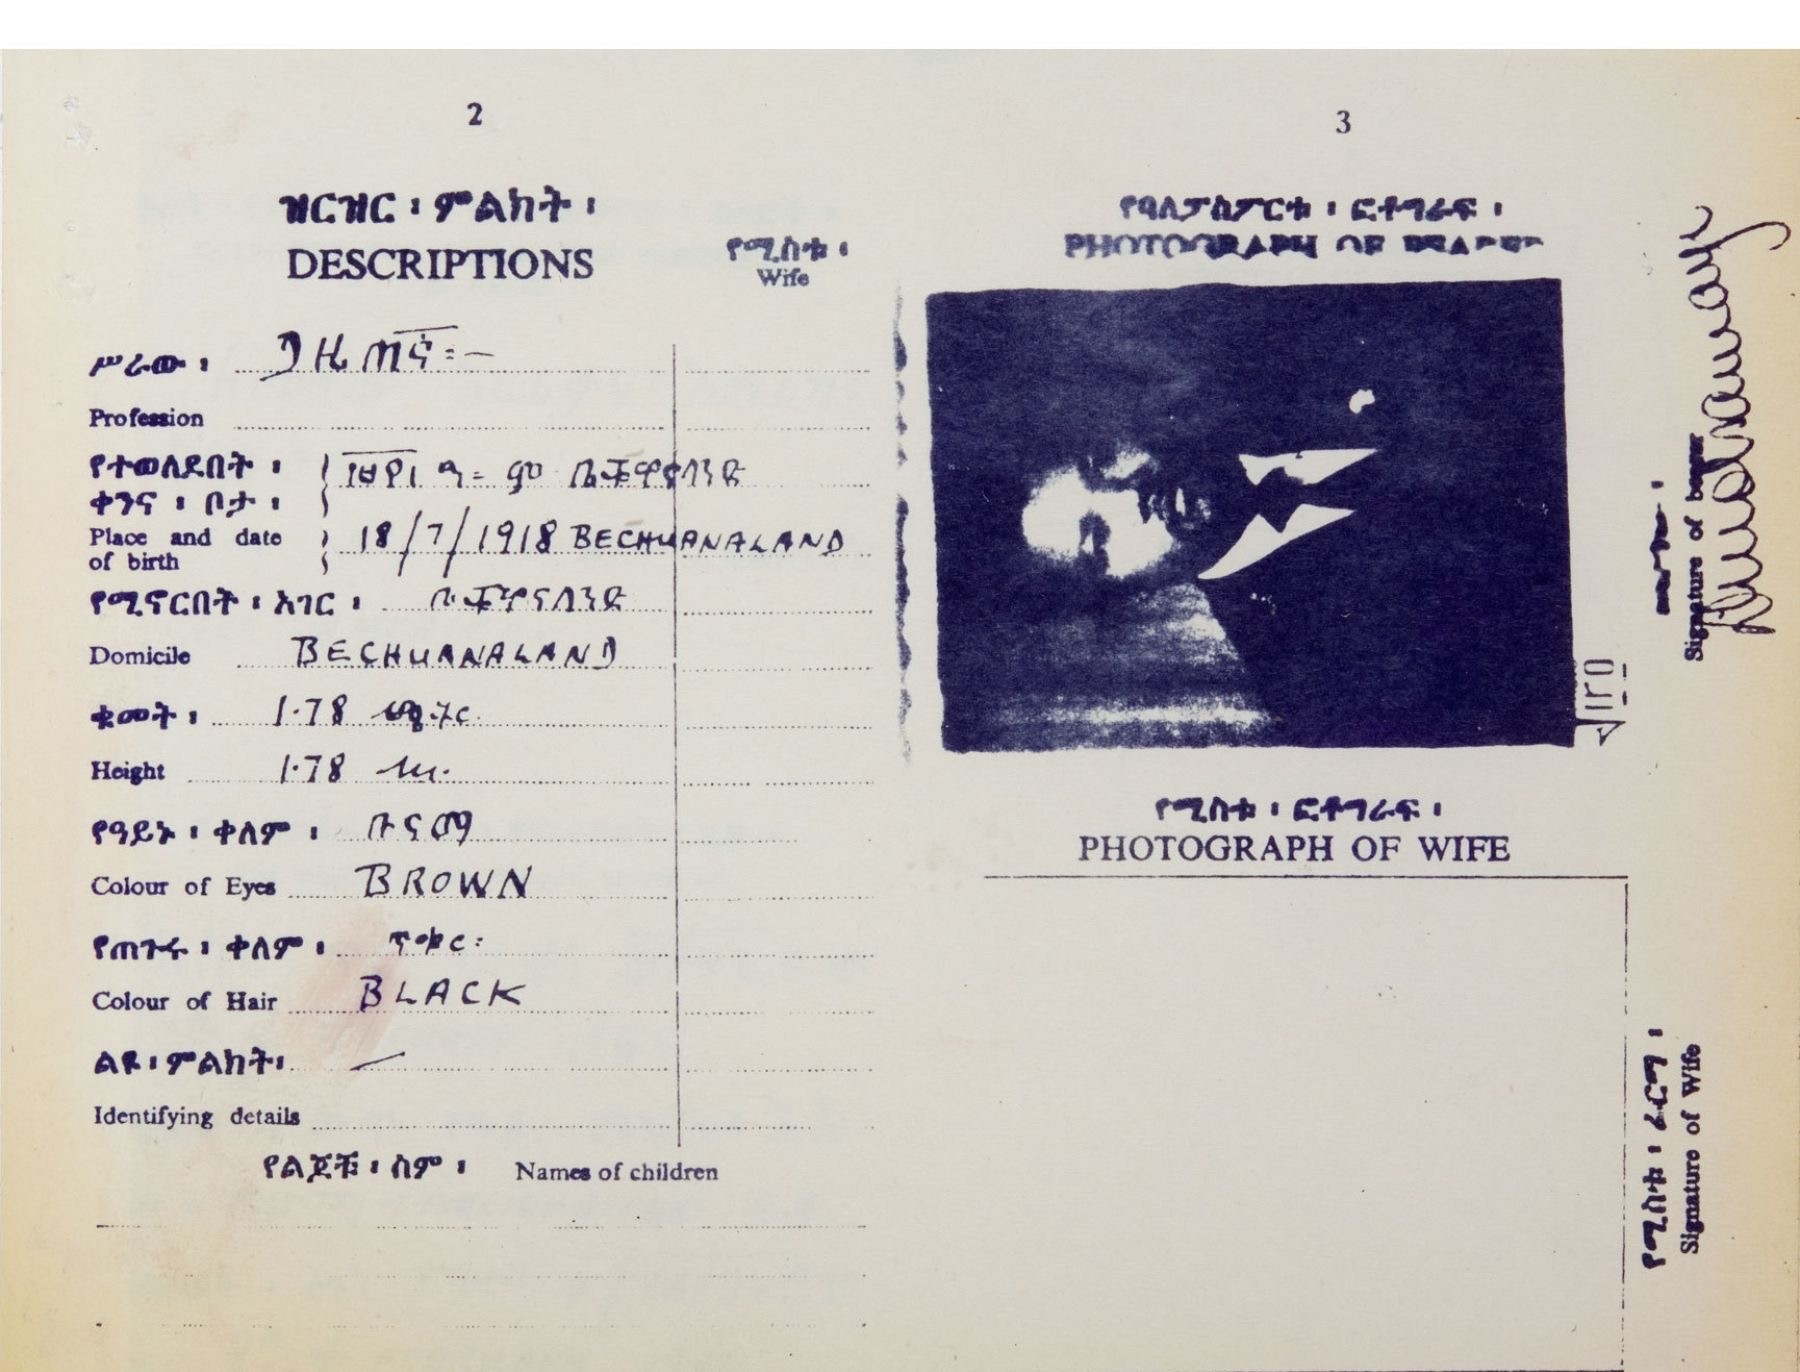 2
ዝርዝር ፡ ምልክት ፡
DESCRIPTIONS
የሚስቱ ፡
Wife
ሥራው ፡ ጋዜጠኛ
Profession
የተወለደበት ፡
ቀንና ፡ ቦታ ፡
Place and date
of birth
18/7/1918 BECHUANALAND
የሚኖርበት ፡ አገር ፡ ቤቿዋናላንድ
Domicile BECHUANALAND
ቁመት ፡ 1.78 ሜትር
Height 1.78 m.
የዓይኑ ፡ ቀለም ፡ ቡናማ
Colour of Eyes BROWN
የጠጉሩ ፡ ቀለም ፡ ጥቁር ፡
Colour of Hair BLACK
ልዩ ፡ ምልክት ፡ —
Identifying details
የልጆቹ ፡ ስም ፡ Names of children
3
የባለፓስፖርቱ ፡ ፎቶግራፍ ፡
PHOTOGRAPH OF BEARER
Signature of bearer
የሚስቱ ፡ ፎቶግራፍ ፡
PHOTOGRAPH OF WIFE
የሚስቱ ፡ ፊርማ ፡
Signature of Wife